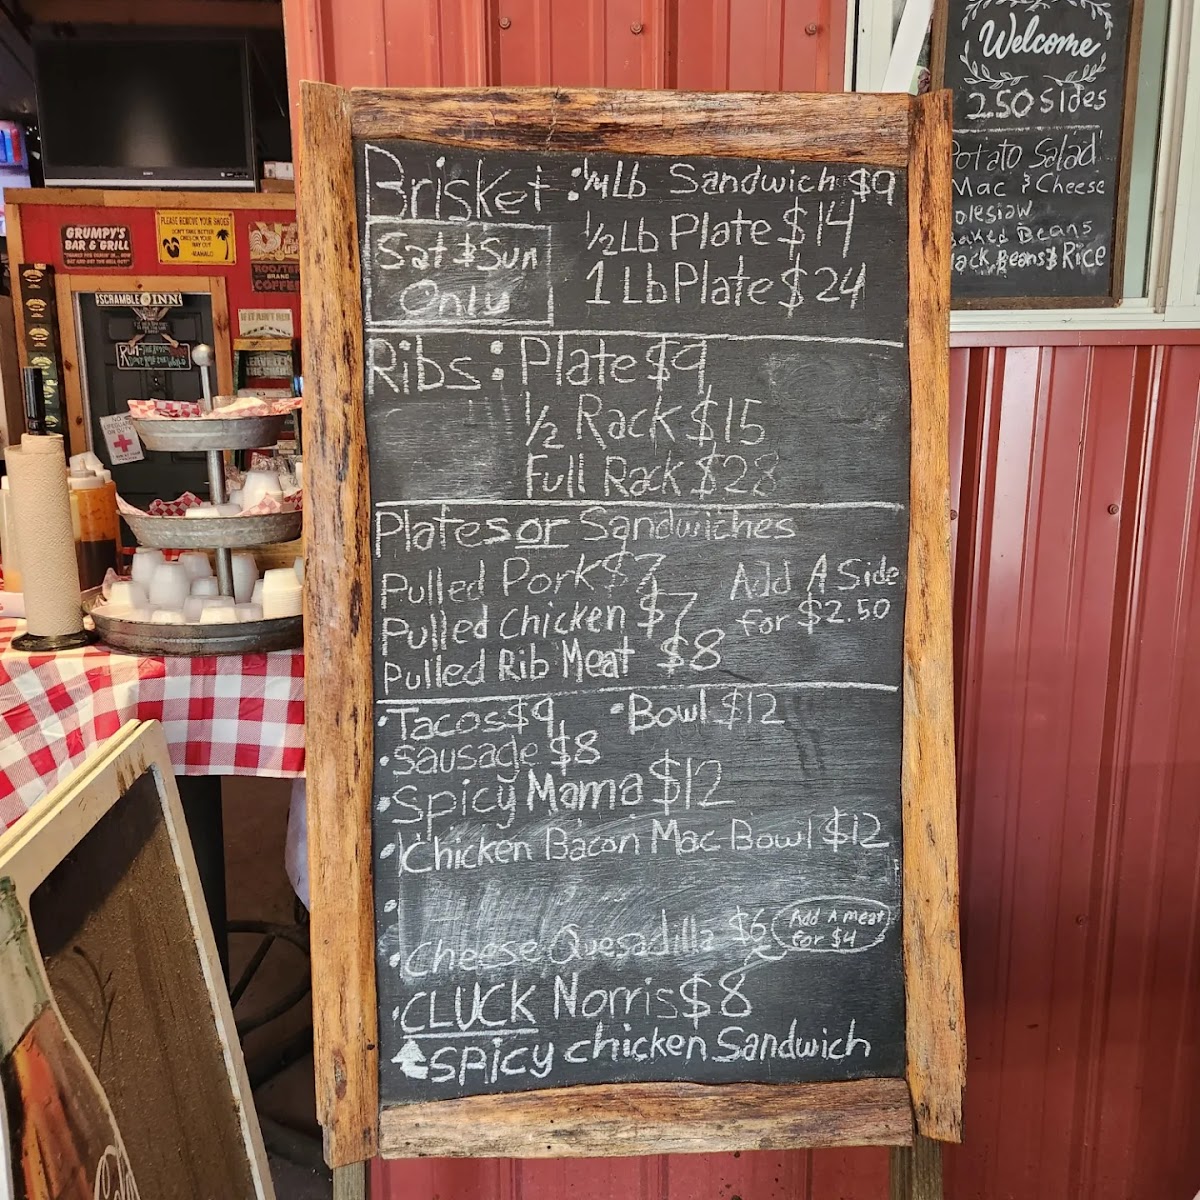 Brisket: 1/4 Lb Sandwich $9
1/2 Lb Plate $14
1 Lb Plate $24
Sat & Sun
Only
Ribs: Plate $9
1/2 Rack $15
Full Rack $28
Plates or Sandwiches
Pulled Pork $7
Pulled Chicken $7
Pulled Rib Meat $8
Add A Side
for $2.50
·Tacos $9 ·Bowl $12
·Sausage $8
·Spicy Mama $12
·Chicken Bacon Mac Bowl $12
·Cheese Quesadilla $6
Add A meat
for $4
·CLUCK Norris $8
SPICY chicken Sandwich
Welcome
2.50 Sides
Potato Salad
Mac & Cheese
oleslaw
aked Beans
lack Beans & Rice
GRUMPY'S
BAR & GRILL
PLEASE REMOVE YOUR SHOES
SCRAMBLE INN
ROOSTER
BRAND
COFFEE
SONY